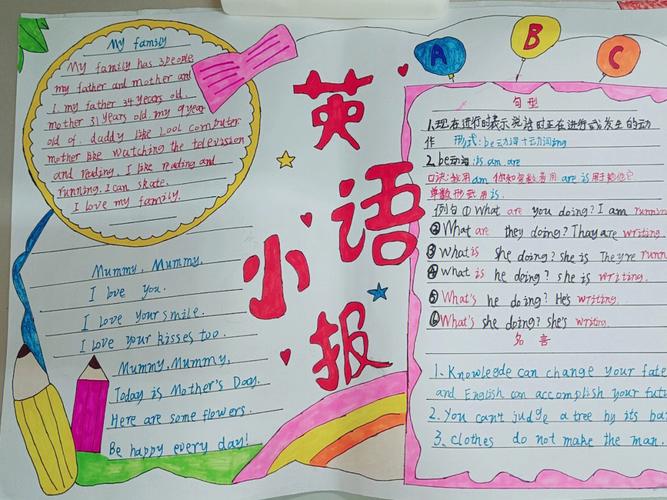 My family
My family has 3people
my father and mother and
I. my father 34 years old.
mother 31 years old. my 9 year
old of. daddy like Lool computer.
mother like watching the television
and reading. I like reading and
running. I can skate.
I love my family.
Mummy, Mummy,
I love you.
I love your smile.
I love your kisses too.
Mummy, Mummy,
Today is Mother's Day.
Here are some flowers.
Be happy every day!
英语
小报
A B C
句型
1.现在进行时表示说话时正在进行或发生的动
作 形式:be动词+动词ing
2.be动词:is am are
口诀:我用am 你和复数用are is用于他她它
单数形式用is.
例句 ① What are you doing? I am running
② What are they doing? Thay are writing.
③ What is she doing? she is They're runn
④ What is he doing? she is writing.
⑤ What's he doing? He's writing.
⑥ What's she doing? she's writing.
名言
1. Knowlegde can change your fate
and English can accomplish your futu
2. You can't judge a tree by its ba
3. clothes do not make the man.